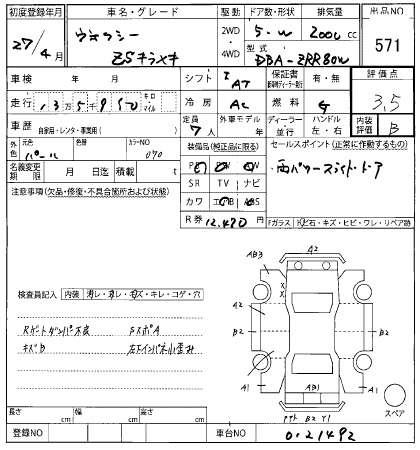 初度登録年月 車名・グレード 駆動 ドア数・形状 排気量 出品NO
27/4月 ヴォクシー ZSキラメキ 2WD ・ 4WD 5・W 2000cc 571
型式 DBA-ZRR80W
車検 年 月 シフト IAT 保証書 有・無 評価点
走行 13万5千950 キロ・マイル 冷房 AC 燃料 G 3.5
車歴 自家用・レンタ・事業用( ) 定員 7人 外車モデル 年 ディーラー・並行 ハンドル 左・右 内装評価 B
外色 元色 パール 色替 カラーNO 070 装備品(純正品に限る) セールスポイント(正常に作動するもの)
名義変更期限 月 日 積載 t
両パワースライドドア
注意事項(欠品・修復・不具合箇所および状態)
SR TV ナビ
カワ
R券 12,470円
Fガラス 飛石・キズ・ヒビ・ワレ・リペア跡
検査員記入 内装 汚レ・スレ・キズ・キレ・コゲ・穴
Rゲートダンパ不良 SスポA
キズB 左下インパネ小歪み
AB3
A2
X
X
A2
B2
B2
A1
A1
AB1
B2 Y1
スペア
長さ cm 幅 cm 高さ cm
登録NO 車台NO 0121492